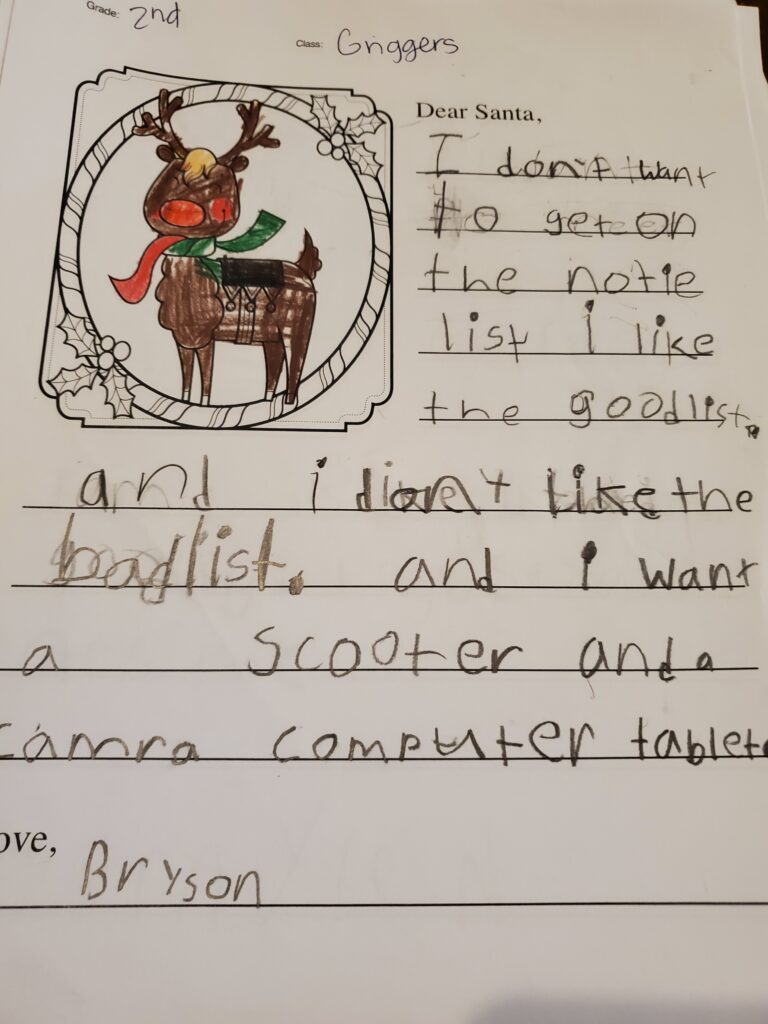 Grade: 2nd
Class: Griggers
Dear Santa,
I don't want
to get on
the notie
list i like
the goodlist.
and i don't like the
badlist. and i want
a scooter and a
camra computer tablet
ove,
Bryson